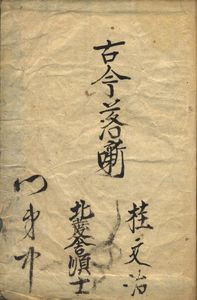 古今落噺
桂文治
北菱舎順士